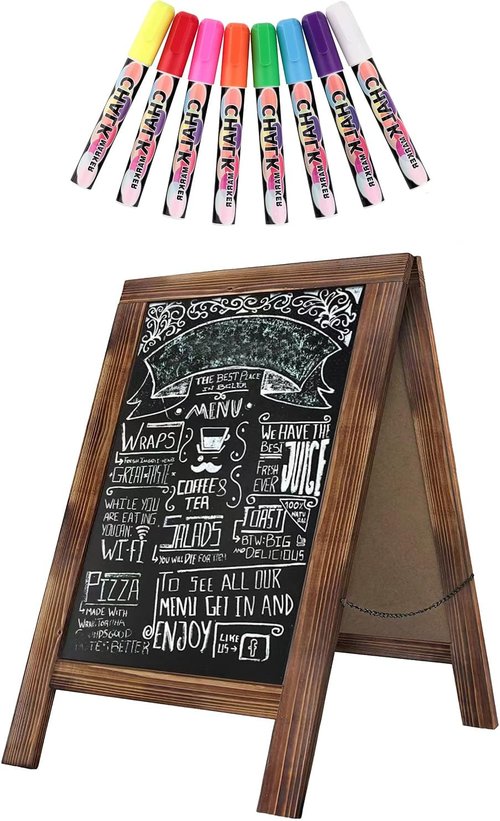 CHALK MARKER
CHALK MARKER
CHALK MARKER
CHALK MARKER
CHALK MARKER
CHALK MARKER
CHALK MARKER
CHALK MARKER
THE BEST PLACE
IN
MENU
WRAPS
GREAT TASTE
WHILE YOU
ARE EATING
YOU CAN:
WIFI
PIZZA
MADE WITH
TASTES BETTER
COFFEE &
TEA
SALADS
YOU WILL DIE FOR IT!!
WE HAVE THE
BEST
FRESH
EVER
JUICE
TOAST
100%
NATURAL
BTW: BIG
AND
DELICIOUS
TO SEE ALL OUR
MENU GET IN AND
ENJOY
LIKE
US
f